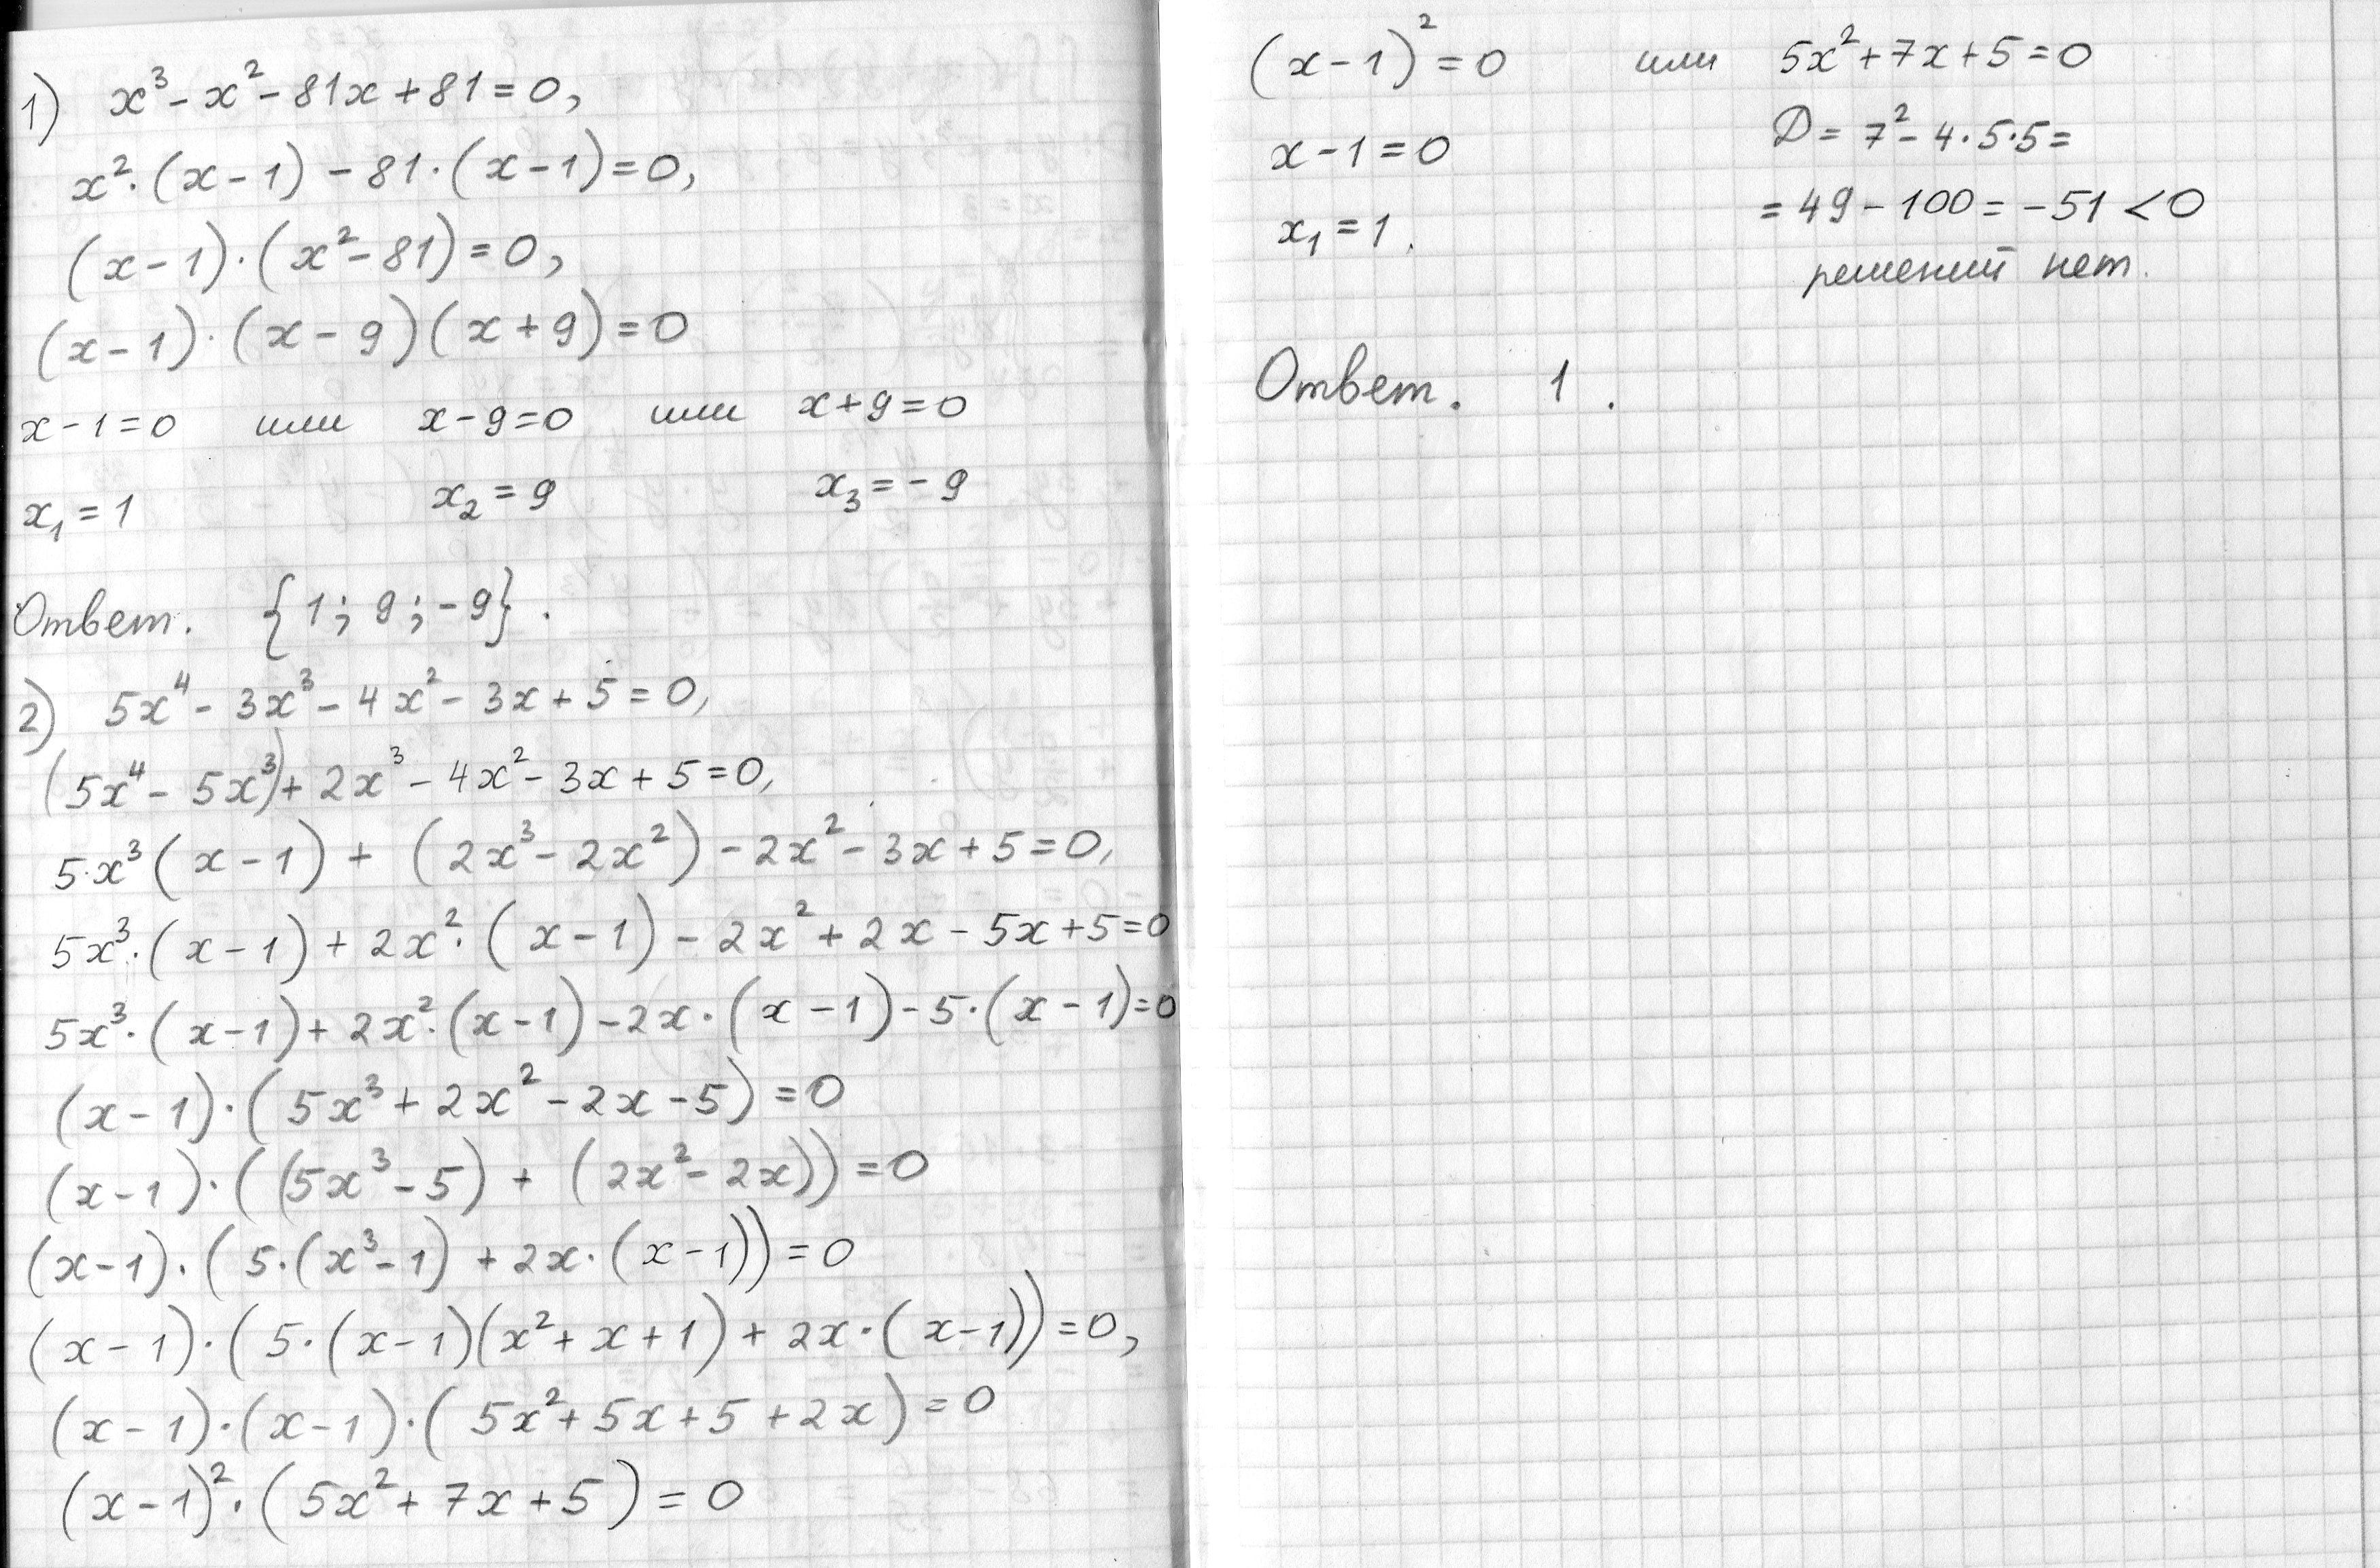 1) x³ - x² - 81x + 81 = 0,
x²·(x - 1) - 81·(x - 1) = 0,
(x - 1)·(x² - 81) = 0,
(x - 1)·(x - 9)(x + 9) = 0
x - 1 = 0 или x - 9 = 0 или x + 9 = 0
x₁ = 1 x₂ = 9 x₃ = - 9
Ответ. {1; 9; -9}.
2) 5x⁴ - 3x³ - 4x² - 3x + 5 = 0,
(5x⁴ - 5x³) + 2x³ - 4x² - 3x + 5 = 0,
5·x³(x - 1) + (2x³ - 2x²) - 2x² - 3x + 5 = 0,
5x³·(x - 1) + 2x²·(x - 1) - 2x² + 2x - 5x + 5 = 0
5x³·(x - 1) + 2x²·(x - 1) - 2x·(x - 1) - 5·(x - 1) = 0
(x - 1)·(5x³ + 2x² - 2x - 5) = 0
(x - 1)·((5x³ - 5) + (2x² - 2x)) = 0
(x - 1)·(5·(x³ - 1) + 2x·(x - 1)) = 0
(x - 1)·(5·(x - 1)(x² + x + 1) + 2x·(x - 1)) = 0,
(x - 1)·(x - 1)·(5x² + 5x + 5 + 2x) = 0
(x - 1)²·(5x² + 7x + 5) = 0
(x - 1)² = 0 или 5x² + 7x + 5 = 0
x - 1 = 0 D = 7² - 4·5·5 =
x₁ = 1. = 49 - 100 = -51 < 0
решений нет.
Ответ. 1.